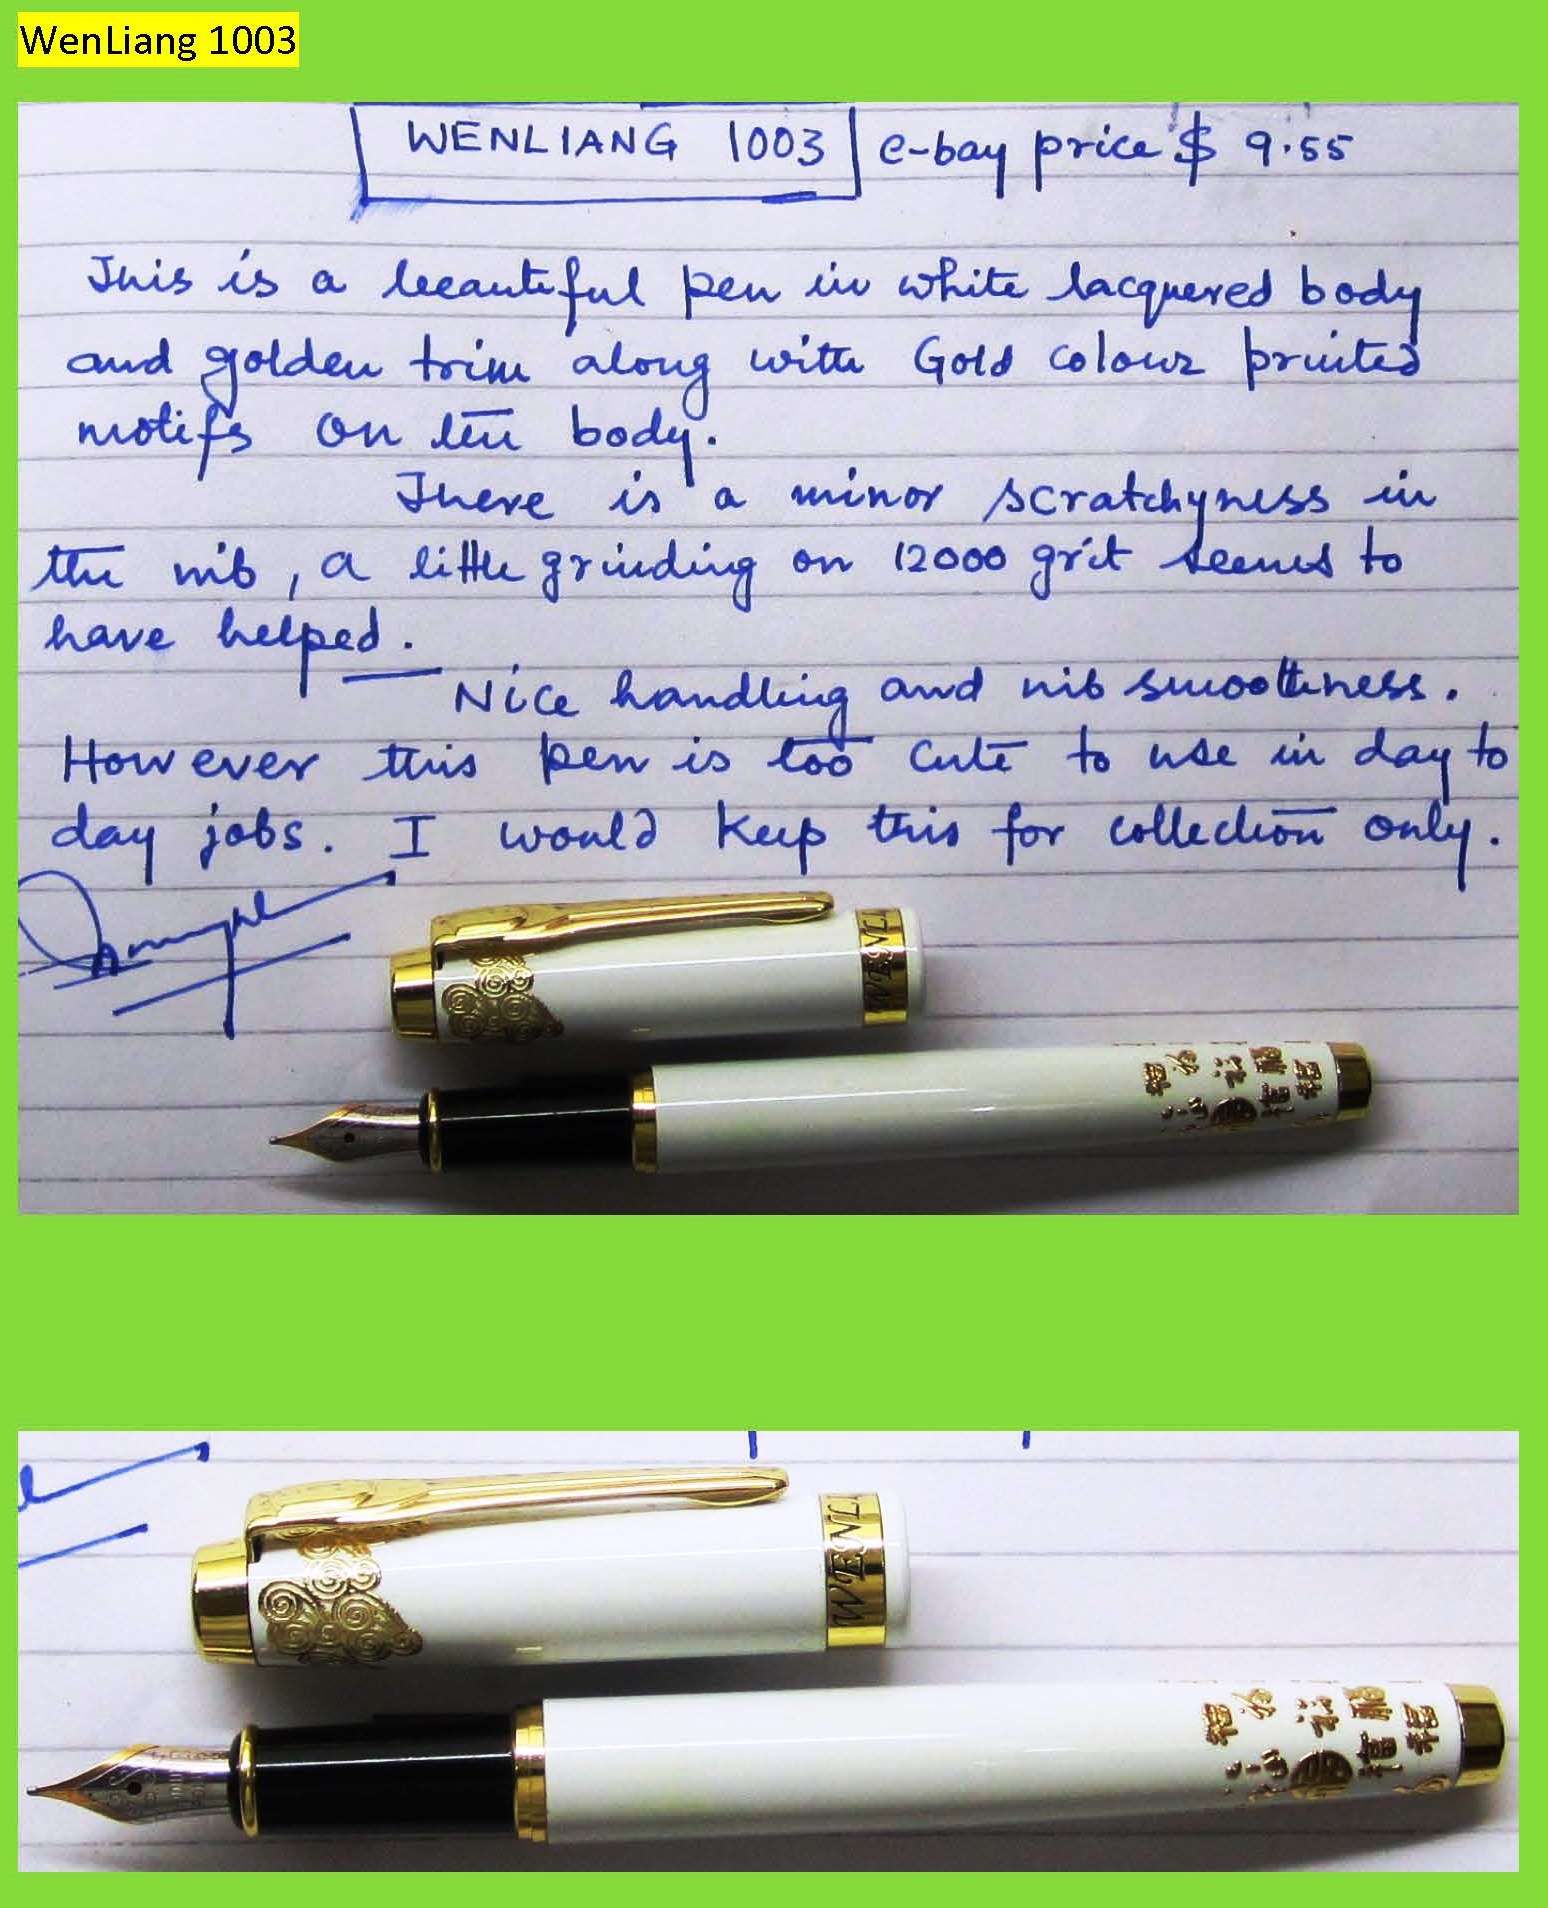 WenLiang 1003
WENLIANG 1003 e-bay price $ 9.55
This is a beautiful pen in white lacquered body
and golden trim along with Gold colour printed
motifs on the body.
There is a minor scratchyness in
the nib, a little grinding on 12000 grit seems to
have helped.
Nice handling and nib smoothness.
However this pen is too cute to use in day to
day jobs. I would keep this for collection only.
WENL
福
WENL
福